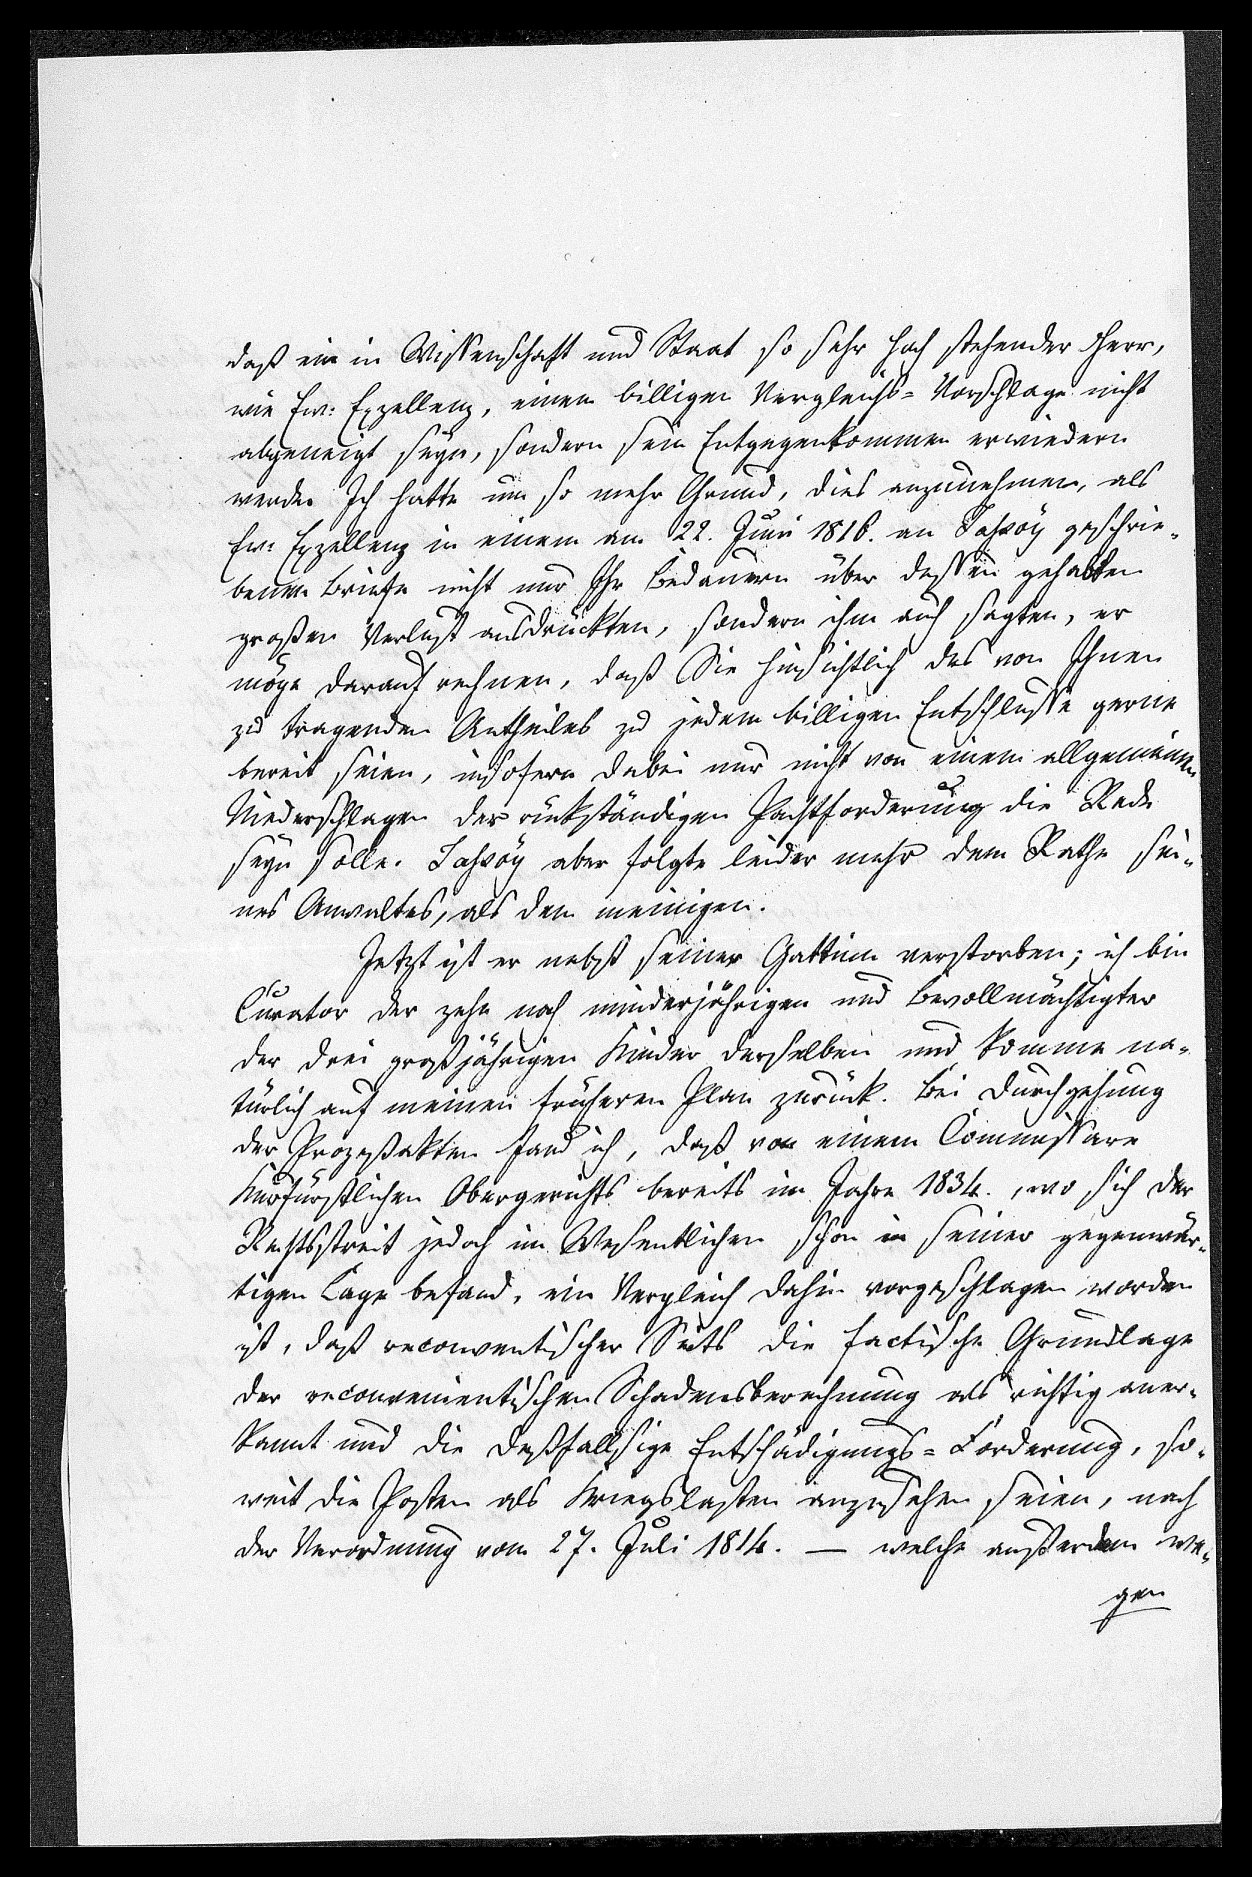 daß ein in Wissenschaft und Staat so sehr hoch stehender Herr,
wie Ew: Exzellenz, einem billigen Vergleichs=Vorschlage nicht
abgeneigt seyn, sondern sein Entgegenkommen erwiedern
werde. Ich hatte um so mehr Grund, dies anzunehmen, als
Ew: Exzellenz in einem am 22. Juni 1816. an geschrie-
benen Briefe nicht nur Ihr Bedauern über dessen gehabten
großen Verlust ausdrückten, sondern ihm auch sagten, er
möge darauf rechnen, daß Sie hinsichtlich des von Ihnen
zu tragenden Antheiles zu jedem billigen Entschlusse gerne
bereit seien, insofern dabei nur nicht von einem allgemeinen
Niederschlagen der rückständigen Pachtforderung die Rede
seyn solle. aber folgte leider mehr dem Rathe sei-
nes Anwaltes, als dem meinigen.
Jetzt ist er nebst seiner Gattinn verstorben; ich bin
Curator der zehn noch minderjährigen und Bevollmächtigter
der drei großjährigen Kinder derselben und komme na-
türlich auf meinen früheren Plan zurück. Bei Durchgehung
der Prozeßakten fand ich, daß von einem Commissare
Kurfürstlichen Obergerichts bereits im Jahre 1834., wo sich der
Rechtsstreit jedoch im Wesentlichen schon in seiner gegenwär-
tigen Lage befand, ein Vergleich dahin vorgeschlagen worden
ist, daß reconventischer Seits die factische Grundlage
der reconvenientischen Schadensberechnung als richtig aner-
kannt und die deßfallsige Entschädigungs=Forderung, so-
weit die Posten als Kriegslasten anzusehen seien, nach
der Verordnung vom 27. Juli 1814. — welche außerdem we-
gen